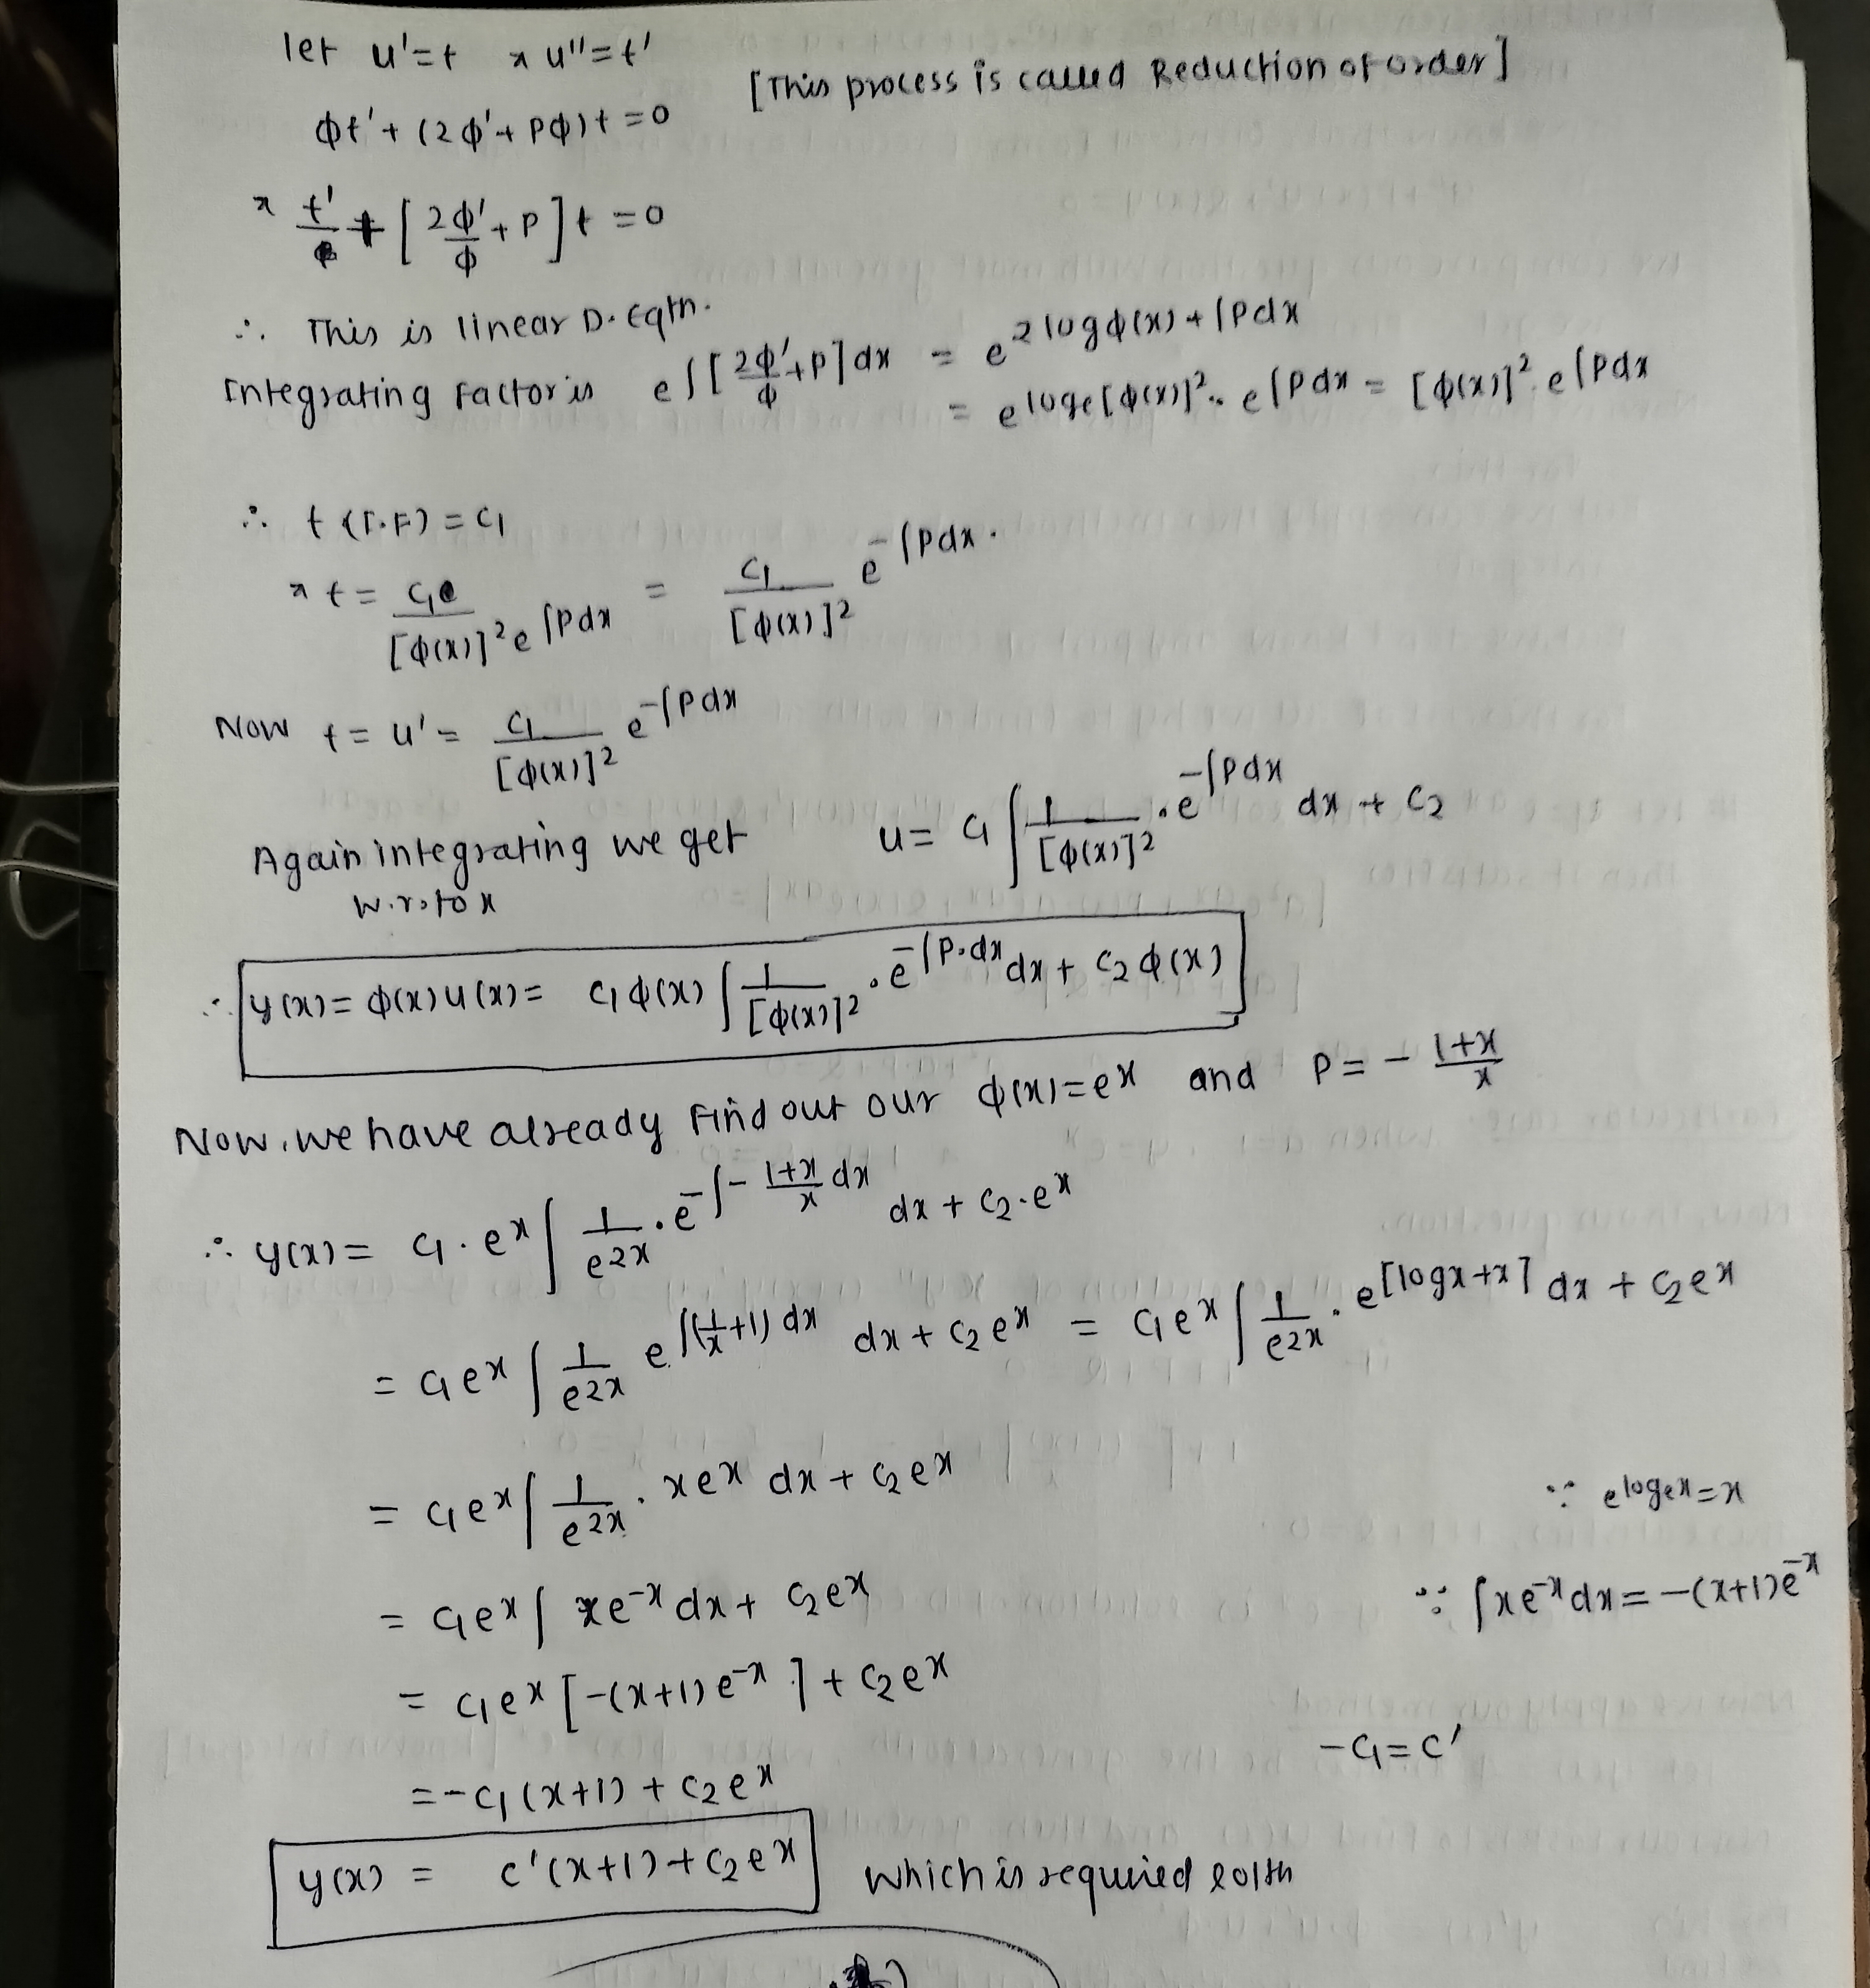 let u'=t & u''=t'
[This process is called Reduction of order]
ϕt'+(2ϕ'+Pϕ)t=0
& t' + [2ϕ'/ϕ + P]t = 0
∴ This is linear D.Eqtn.
Integrating Factor is e∫[2ϕ'/ϕ+P]dx = e^2logϕ(x)+∫Pdx
= e^loge[ϕ(x)]². e^∫Pdx = [ϕ(x)]². e^∫Pdx
∴ t(I.F) = c₁
& t = c₁/[ϕ(x)]²e^∫Pdx = c₁/[ϕ(x)]² e^-∫Pdx.
Now t = u' = c₁/[ϕ(x)]² e^-∫Pdx
Again integrating we get u = c₁∫1/[ϕ(x)]².e^-∫Pdx dx + c₂
w.r.to x
∴ y(x) = ϕ(x)u(x) = c₁ϕ(x)∫1/[ϕ(x)]².e^-∫P.dx dx + c₂ϕ(x)
Now, we have already Find out our ϕ(x)=e^x and P = -(1+x)/x
∴ y(x) = c₁.e^x∫1/e^2x.e^-∫-(1+x)/x dx dx + c₂.e^x
= c₁e^x∫1/e^2x e^∫(1/x+1)dx dx + c₂e^x = c₁e^x∫1/e^2x.e^[logx+x] dx + c₂e^x
= c₁e^x∫1/e^2x.xe^x dx + c₂e^x ∵ e^logex = x
= c₁e^x∫xe^-x dx + c₂e^x ∵ ∫xe^-x dx = -(x+1)e^-x
= c₁e^x[-(x+1)e^-x] + c₂e^x
= -c₁(x+1) + c₂e^x -c₁=c'
y(x) = c'(x+1)+c₂e^x which is required solth